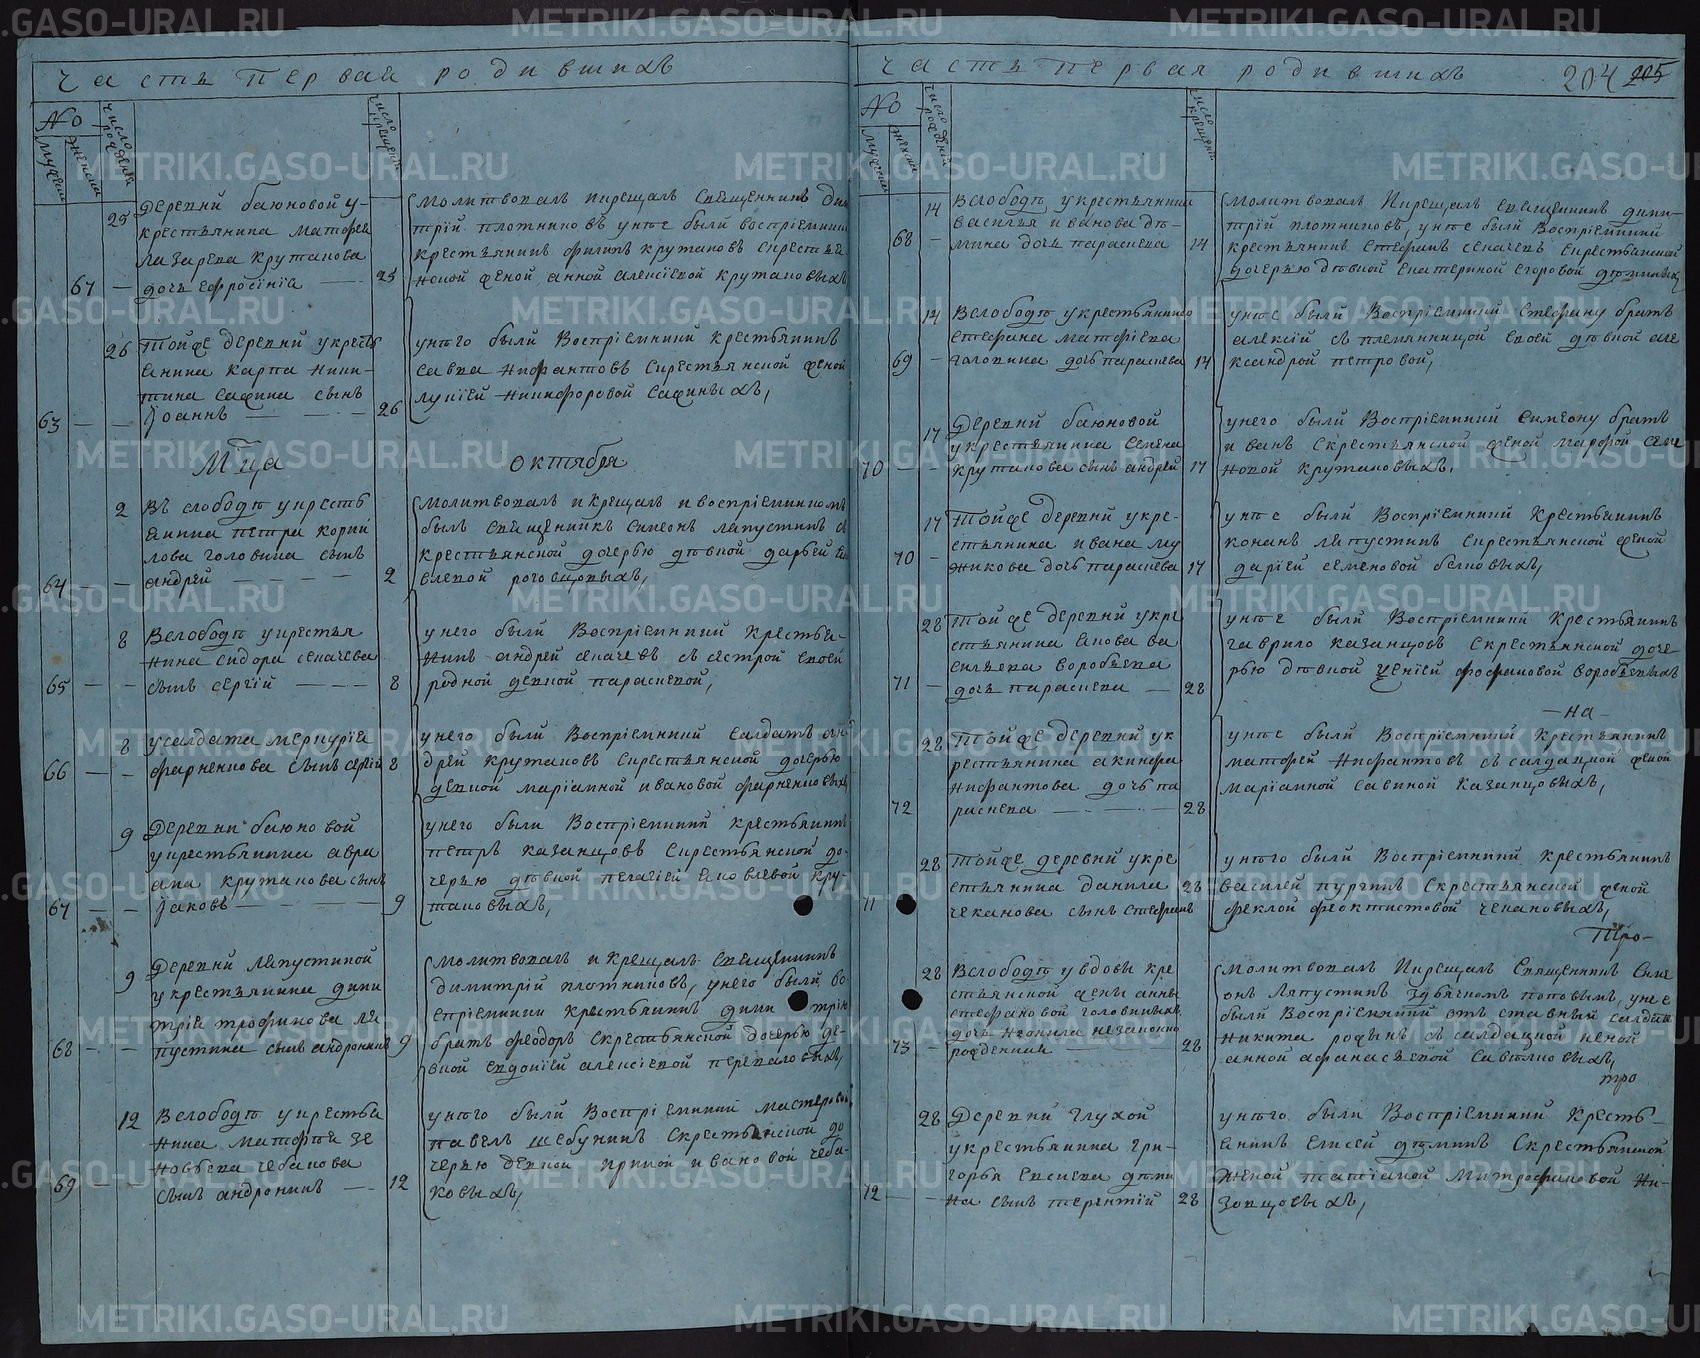 Часть первая родившихъ
№
мужеска
женска
число рожденія
число крещенія
25
Деревни баюновой у
крестьянина матфея
лазарева крутакова
67 — дочь ефросиніа — 25
Молитвовалъ икрещалъ священникъ дим
трій плотниковъ унее были воспріемники
крестьянинъ филипъ крутаковъ скрестья
нской женой анной алексіевой крутаковыхъ
26
Тойже деревни укресть
янина карпа ники
тина сафина сынъ
63 — — Іоаннъ — 26
унего были Воспріемники крестьянинъ
савва нифантовъ скрестьянской женой
лукіей никифоровой сафиныхъ,
Мца октября
2
Въ слободѣ укресть
янина петра корни
лова головина сынъ
64 — — андрей — 2
Молитвовалъ и крещалъ и воспріемникомъ
былъ священникъ симеонъ ляпустинъ съ
крестьянской дочерью дѣвкой дарьей
влевой роговцовыхъ,
8
Вслободѣ укрестья
нина сидора сеначева
65 — — сынъ сергій — 8
унего были Воспріемники крестья
нинъ андрей сеначевъ съ сестрой своей
родной девкой параскевой,
8
усалдата меркуріа
66 — — фарненкова сынъ сергій 8
унего были Воспріемники салдатъ ан
дрей крутаковъ скрестьянской дочерью
девкой маріамной ивановой фарненковыхъ
9
Деревни баюновой
укрестьянина авра
ама крутакова сынъ
67 — — Іаковъ — 9
унего были Воспріемники крестьянинъ
петръ казанцовъ скрестьянской до
черью дѣвкой пелагіей яковлевой кру
таковыхъ,
9
Деревни ляпустиной
укрестьянина дими
тріа трофимова ля
68 — — пустина сынъ андроникъ 9
Молитвовалъ и крещалъ священникъ
димитрій плотниковъ, унего были во
спріемники крестьянинъ димитрію
братъ феодоръ скрестьянской дочерью де
вкой евдокіей алексіевой переваловыхъ,
12
Вслободѣ укрестья
нина матфея зе
новьева чебакова
69 — — сынъ андроникъ — 12
унего были Воспріемники мастеровой
павелъ шебунинъ скрестьянской до
черью девкой ириной ивановой чеба
ковыхъ,
Часть первая родившихъ 204 205
№
мужеска
женска
число рожденій
число крещеній
14
Вслободѣ укрестьянина
василья иванова дѣ
68 — мина дочь параскева 14
Молитвовалъ Икрещалъ священникъ дими
трій плотниковъ, унее были Воспріемники
крестьянинъ стефанъ сеначевъ скрестьянской
дочерью дѣвкой екатериной егоровой дѣминыхъ
14
Вслободѣ укрестьянина
стефана матфіева
69 — головина дочь параскева 14
унее были Воспріемники стефану братъ
алексій съ племянницой своей дѣвкой але
ксандрой петровой,
17
Деревни баюновой
укрестьянина семена
70 — — крутакова сынъ андрей 17
унего были Воспріемники симеону братъ
иванъ скрестьянской женой марфой семе
новой крутаковыхъ,
17
Тойже деревни укре
стьянина ивана му
70 — жикова дочь параскева 17
унее были Воспріемники крестьянинъ
кононъ ляпустинъ скрестьянской женой
дарьей семеновой белковыхъ,
28
Тойже деревни укре
стьянина якова ва
сильева воробьева
71 — дочь параскева — 28
унее были Воспріемники крестьянинъ
гаврило казанцовъ скрестьянской доче
рью дѣвкой ксеніей фофановой воробьевыхъ
—на—
28
Тойже деревни ук
рестьянина акинфа
нифантова дочь па
72 раскева — 28
унее были Воспріемники крестьянинъ
матфей нифантовъ съ салдацкой женой
маріамной савиной казанцовыхъ,
28
Тойже деревни укре
стьянина данила 28
71 чеканова сынъ стефанъ
унего были Воспріемники крестьянинъ
василей пургинъ скрестьянской женой
феклой феоктистовой чекановыхъ,
Тпро—
28
Вслободѣ увдовы кре
стьянской жены анны
стефановой головиныхъ
дочь неонила незаконно
73 — рожденная — 28
Молитвовалъ Икрещалъ священникъ симе
онъ ляпустинъ здьячкомъ поповымъ, унее
были Воспріемники отъставный салдатъ
никита родинъ съ салдацкой женой
анной афанасьевой савѣлковыхъ,
тпро
28
Деревни глухой
укрестьянина гри
горья евсиева дѣми
72 — — на сынъ терентій 28
унего были Воспріемники кресть
янинъ елисей дѣминъ скрестьянской
женой татіаной митрофановой ни
зовцовыхъ,